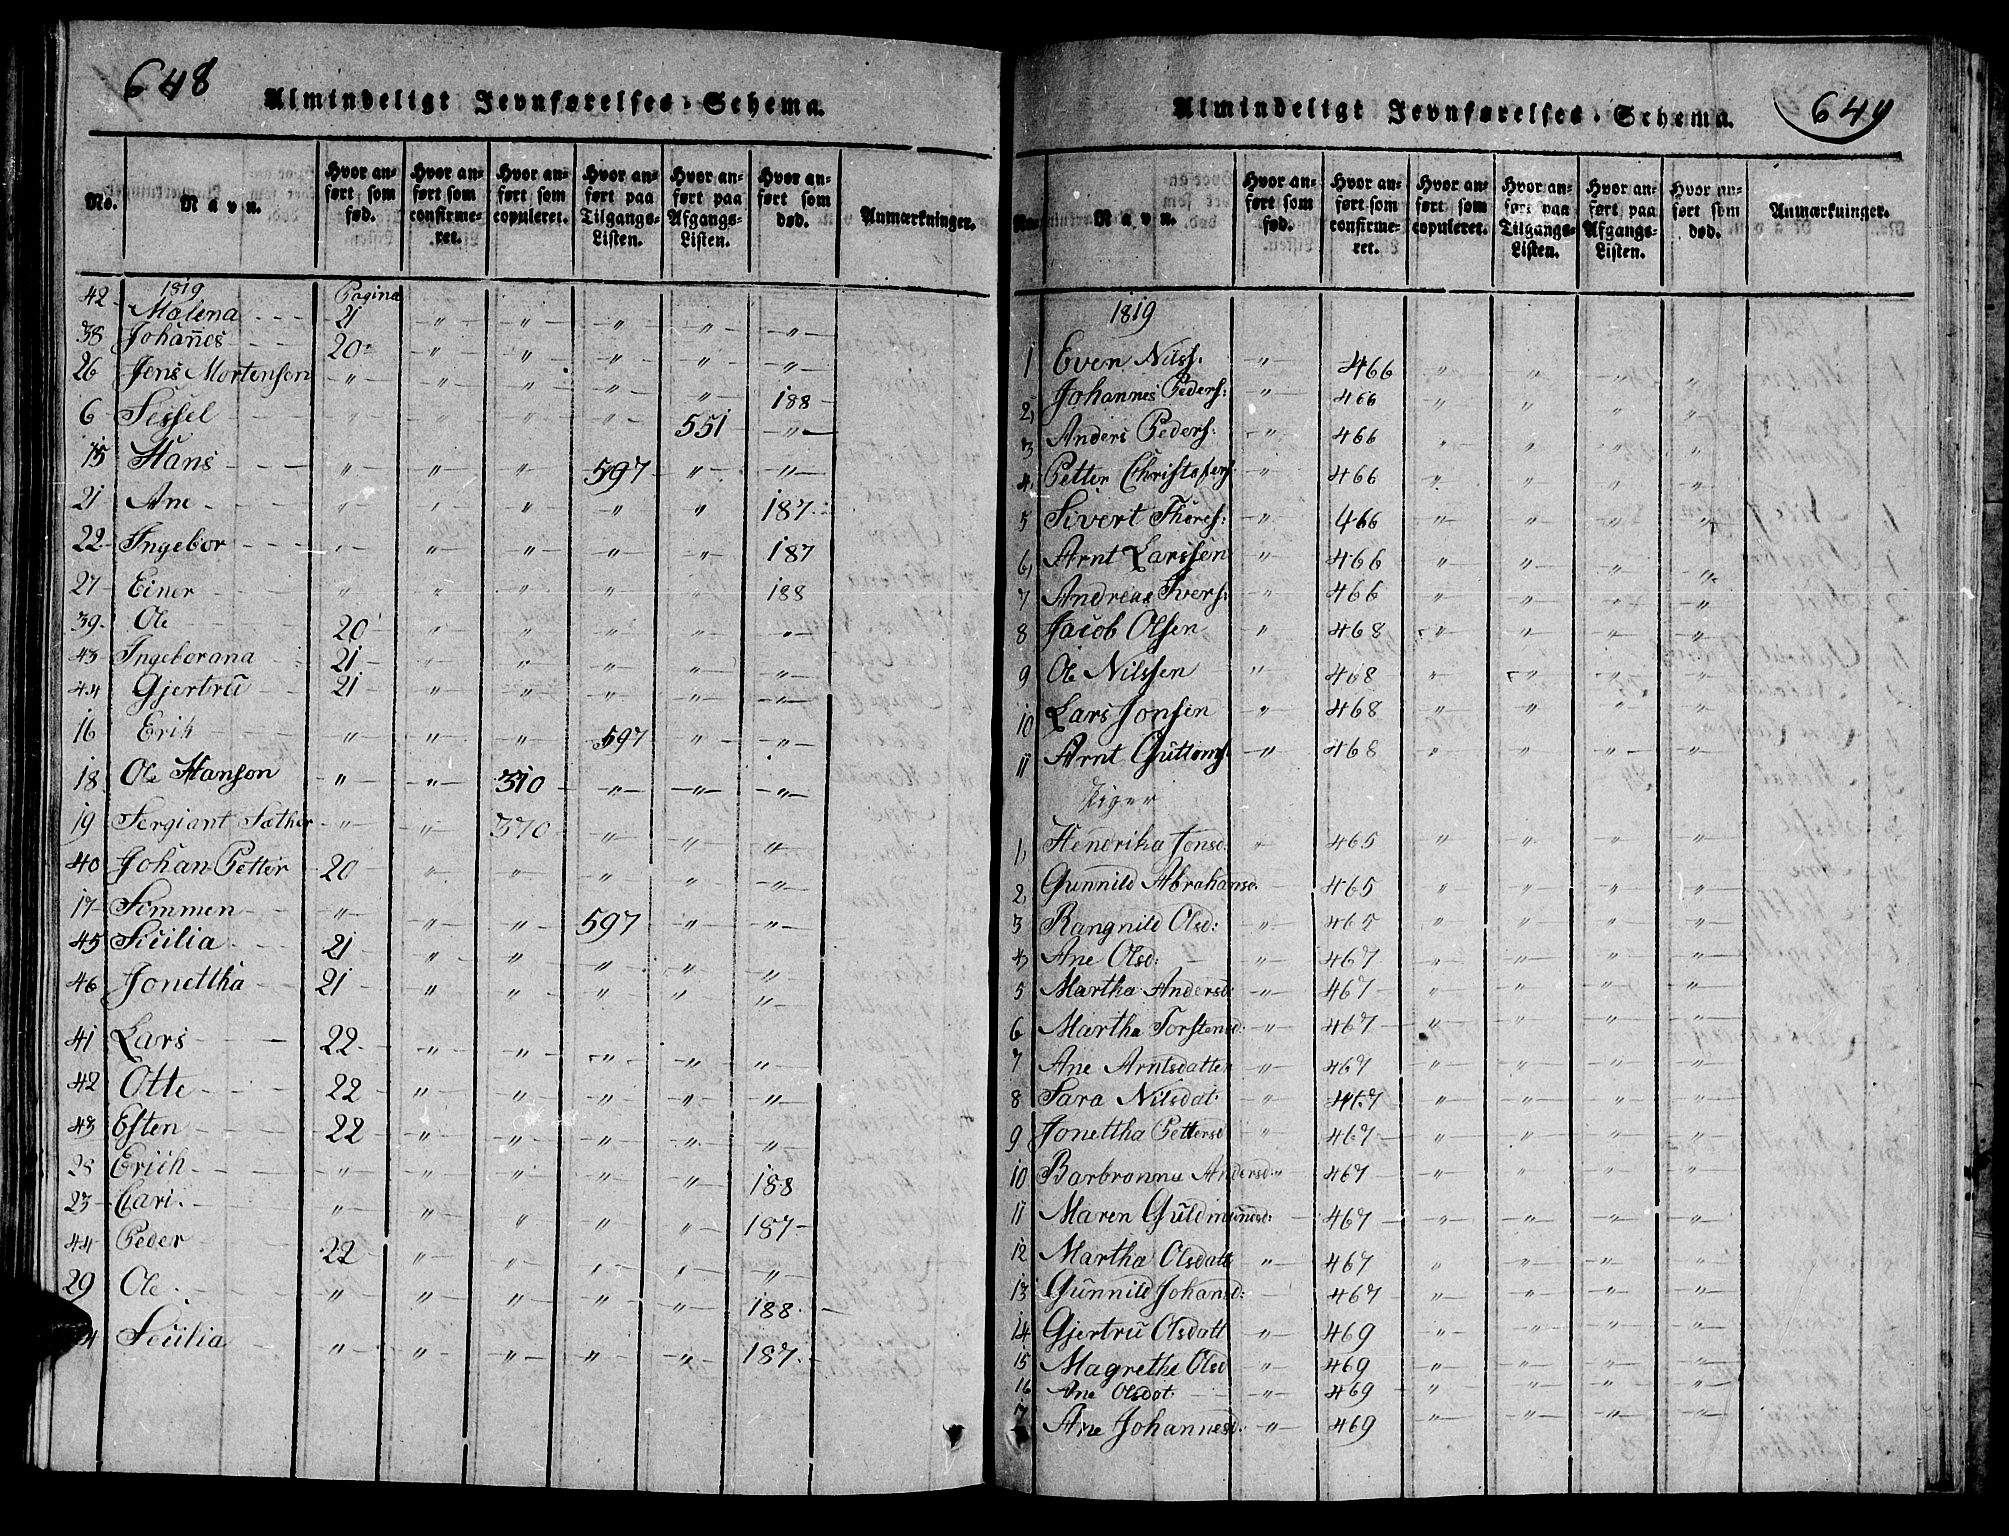 648
Almindeligt Jevnførelses-Schema.
No. | Navn. | Hvor anført som fød. | Hvor anført som confirmeret. | Hvor anført som copuleret. | Hvor anført paa Tilgangs-Listen. | Hvor anført paa Afgangs-Listen. | Hvor anført som død. | Anmærkninger.
1819 Pagina
42 Malena 21 " " " " "
38 Johannes 20 " " " " "
26 Jens Mortensen " " " " " 188
6 Sessel " " " " 551 "
15 Hans " " " 597 " "
21 Ane " " " " " 187
22 Ingebor " " " " " 187
27 Einer " " " " " 188
39 Ole 20 " " " " "
43 Ingeborana 21 " " " " "
44 Gjertru 21 " " " " "
16 Erik " " " 597 " "
18 Ole Hanson " " 310 " " "
19 Sergiant Sæther " " 370 " " "
40 Johan Petter 20 " " " " "
17 Simmen " " " 597 " "
45 Sicilia 21 " " " " "
46 Jonettha 21 " " " " "
41 Lars 22 " " " " "
42 Otte 22 " " " " "
43 Esten 22 " " " " "
28 Erich " " " " " 188
23 Cari " " " " " 187
44 Peder 22 " " " " "
29 Ole " " " " " 188
4 Sicilia " " " " " 187
649
Almindeligt Jevnførelses-Schema.
No. | Navn. | Hvor anført som fød. | Hvor anført som confirmeret. | Hvor anført som copuleret. | Hvor anført paa Tilgangs-Listen. | Hvor anført paa Afgangs-Listen. | Hvor anført som død. | Anmærkninger.
1819
1 Even Nilss: " 466 " " " "
2, Johannes Peders: " 466 " " " "
3 Anders Peders: " 466 " " " "
4, Petter Christofers " 466 " " " "
5 Sivert Thores: " 466 " " " "
6, Arnt Larssen " 466 " " " "
7 Andreas Ivers: " 466 " " " "
8 Jacob Olsen " 468 " " " "
9 Ole Nilssen " 468 " " " "
10 Lars Jonsen " 468 " " " "
11 Arnt Guttoms " 468 " " " "
Piger
1, Hendrika Jonsd. " 465 " " " "
2, Gunnild Abrahamsd. 465 " " " "
3 Rangnild Olsd: " 465 " " " "
4, Ane Olsd: " 467 " " " "
5 Martha Andersd: " 467 " " " "
6 Martha Torstensd: " 467 " " " "
7 Ane Arntsdatter " 467 " " " "
8 Sara Nilsdat: " 467 " " " "
9 Jonettha Pettersd " 467 " " " "
10 Barbranna Andersd: " 467 " " " "
11 Maren Guldmundsd: 467 " " " "
12 Martha Olsdatt " 467 " " " "
13 Gunnild Johansd: 467 " " " "
14 Gjertru Olsdatt " 469 " " " "
15 Magrethe Olsd " 469 " " " "
16 Ane Olsdat: " 469 " " " "
7 Ane Johannesd: " 469 " " " "